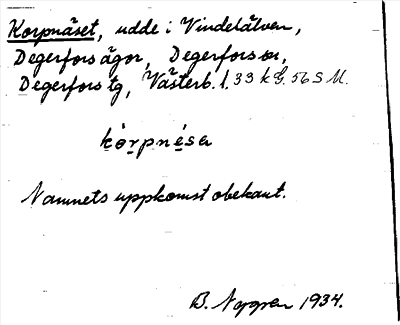 Korpnäset, udde i Vindelälven,
Degerfors ägor, Degerfors sn,
Degerfors tg, Västerb. l. 33 k G. 56 S M.
kȯrpnésa
Namnets uppkomst obekant.
B. Noggren 1934.